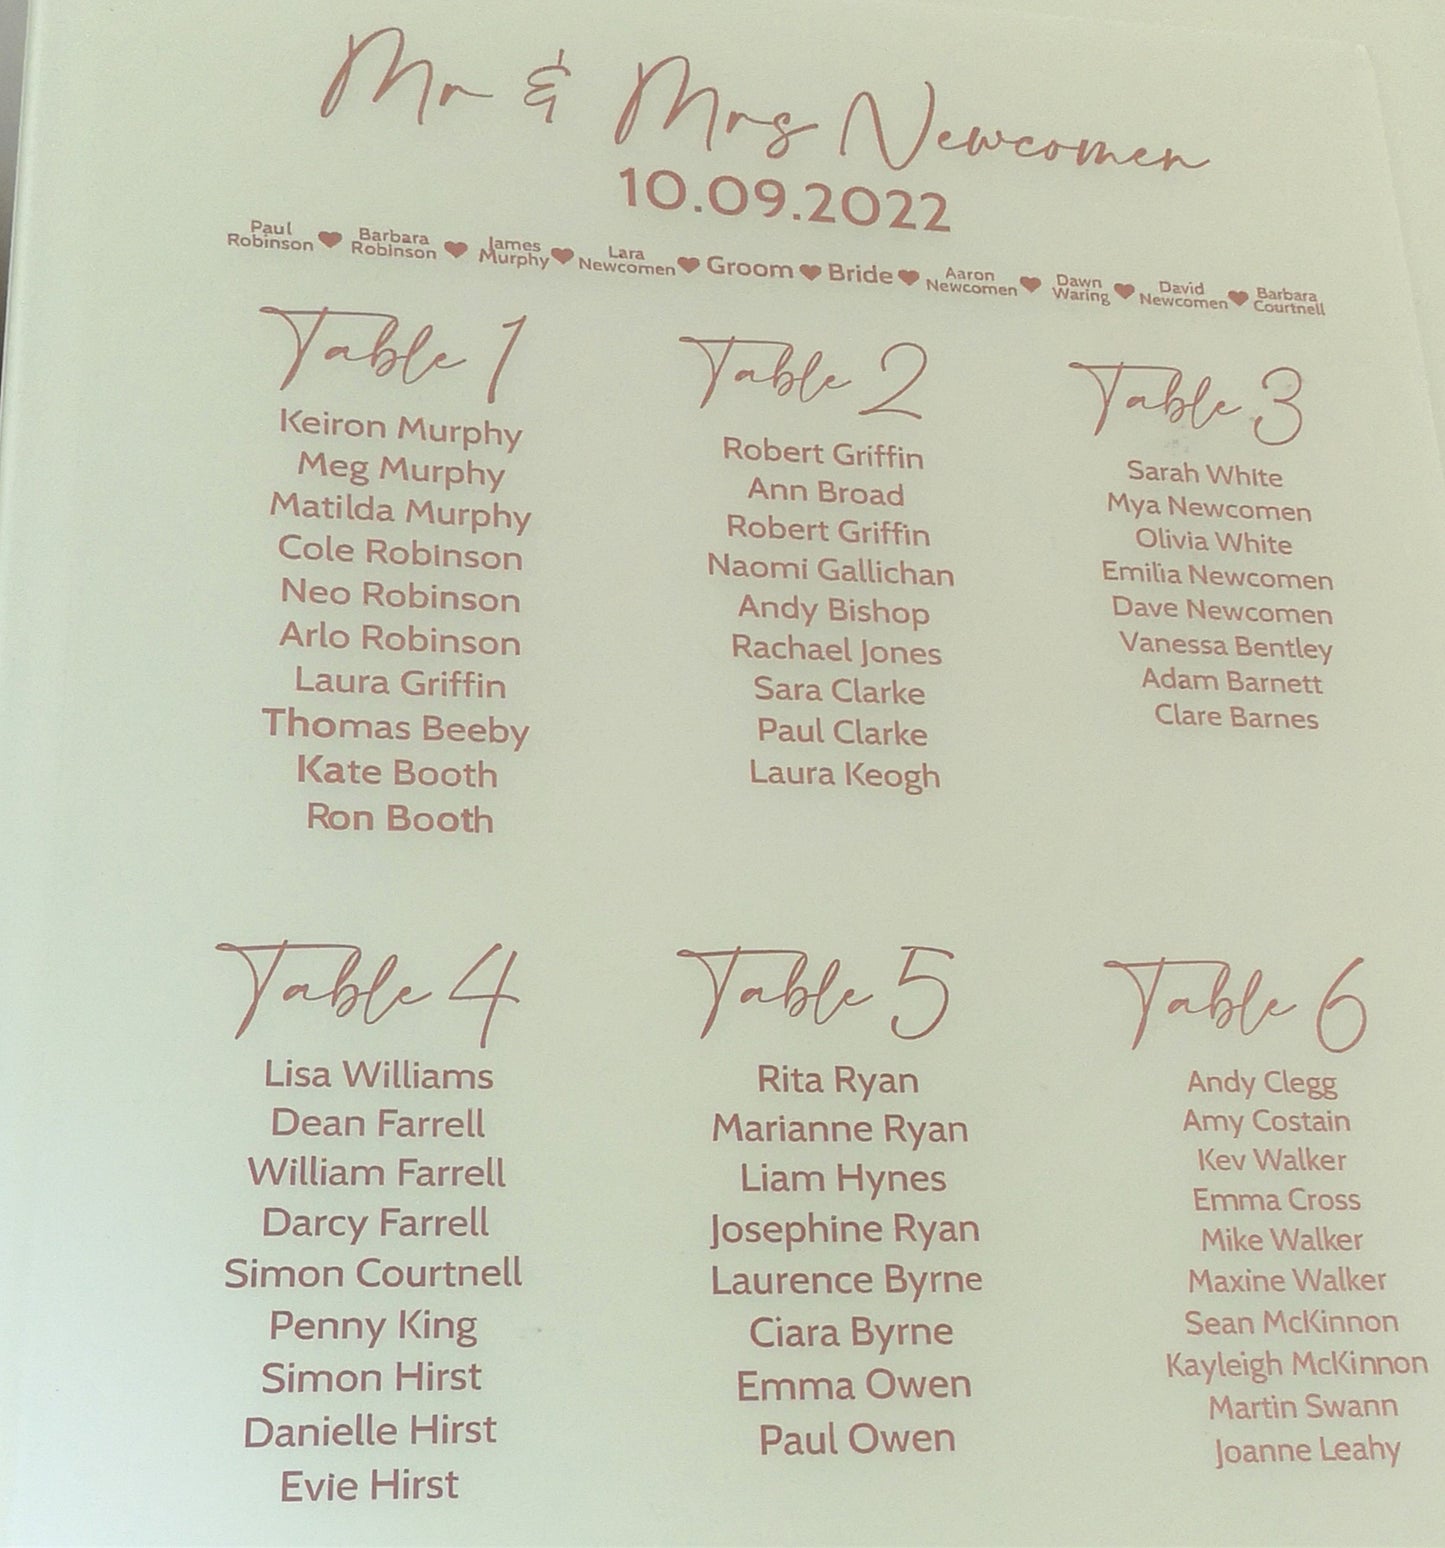 Mr & Mrs Newcomen
10.09.2022
Paul Robinson ♥ Barbara Robinson ♥ James Murphy ♥ Lara Newcomen ♥ Groom ♥ Bride ♥ Aaron Newcomen ♥ Dawn Waring ♥ David Newcomen ♥ Barbara Courtnell
Table 1
Keiron Murphy
Meg Murphy
Matilda Murphy
Cole Robinson
Neo Robinson
Arlo Robinson
Laura Griffin
Thomas Beeby
Kate Booth
Ron Booth
Table 2
Robert Griffin
Ann Broad
Robert Griffin
Naomi Gallichan
Andy Bishop
Rachael Jones
Sara Clarke
Paul Clarke
Laura Keogh
Table 3
Sarah White
Mya Newcomen
Olivia White
Emilia Newcomen
Dave Newcomen
Vanessa Bentley
Adam Barnett
Clare Barnes
Table 4
Lisa Williams
Dean Farrell
William Farrell
Darcy Farrell
Simon Courtnell
Penny King
Simon Hirst
Danielle Hirst
Evie Hirst
Table 5
Rita Ryan
Marianne Ryan
Liam Hynes
Josephine Ryan
Laurence Byrne
Ciara Byrne
Emma Owen
Paul Owen
Table 6
Andy Clegg
Amy Costain
Kev Walker
Emma Cross
Mike Walker
Maxine Walker
Sean McKinnon
Kayleigh McKinnon
Martin Swann
Joanne Leahy